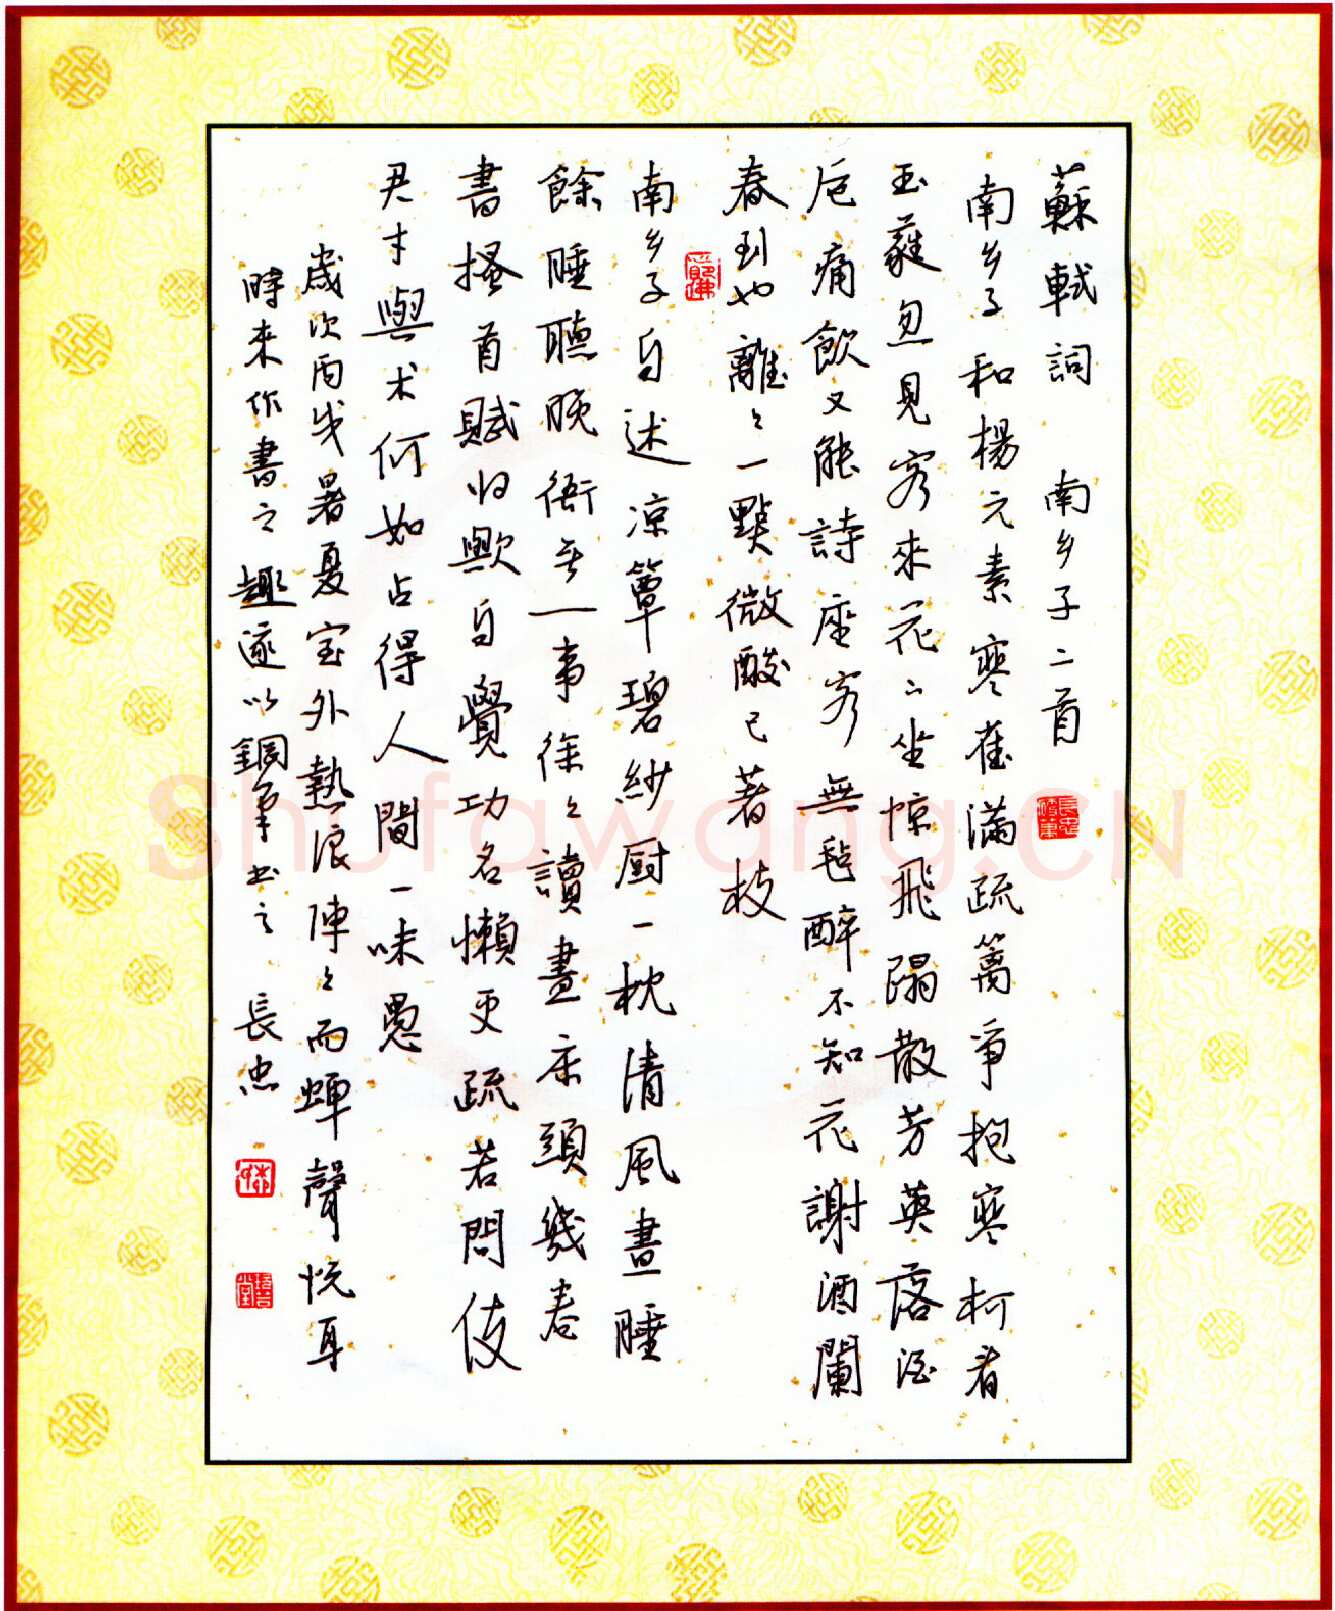 蘇軾詞 南乡子二首
南乡子 和楊元素 寒雀滿疏籬爭抱寒柯看
玉蕤忽見客来花下坐惊飛蹋散芳英落酒
卮痛飲又能詩座客無毡醉不知花謝酒闌
春到也離々一點微酸已著枝
南乡子自述 涼簟碧紗厨一枕清風晝睡
餘睡聽晚衙無一事徐々讀盡床頭幾卷
書搔首賦归歟自覺功名懶更疏若問使
君才與术何如占得人間一味愚
歲次丙戌暑夏室外熱浪陣々而蟬聲悅耳
時来作書之趣遂以鋼筆书之 長忠
Shufawang.CN